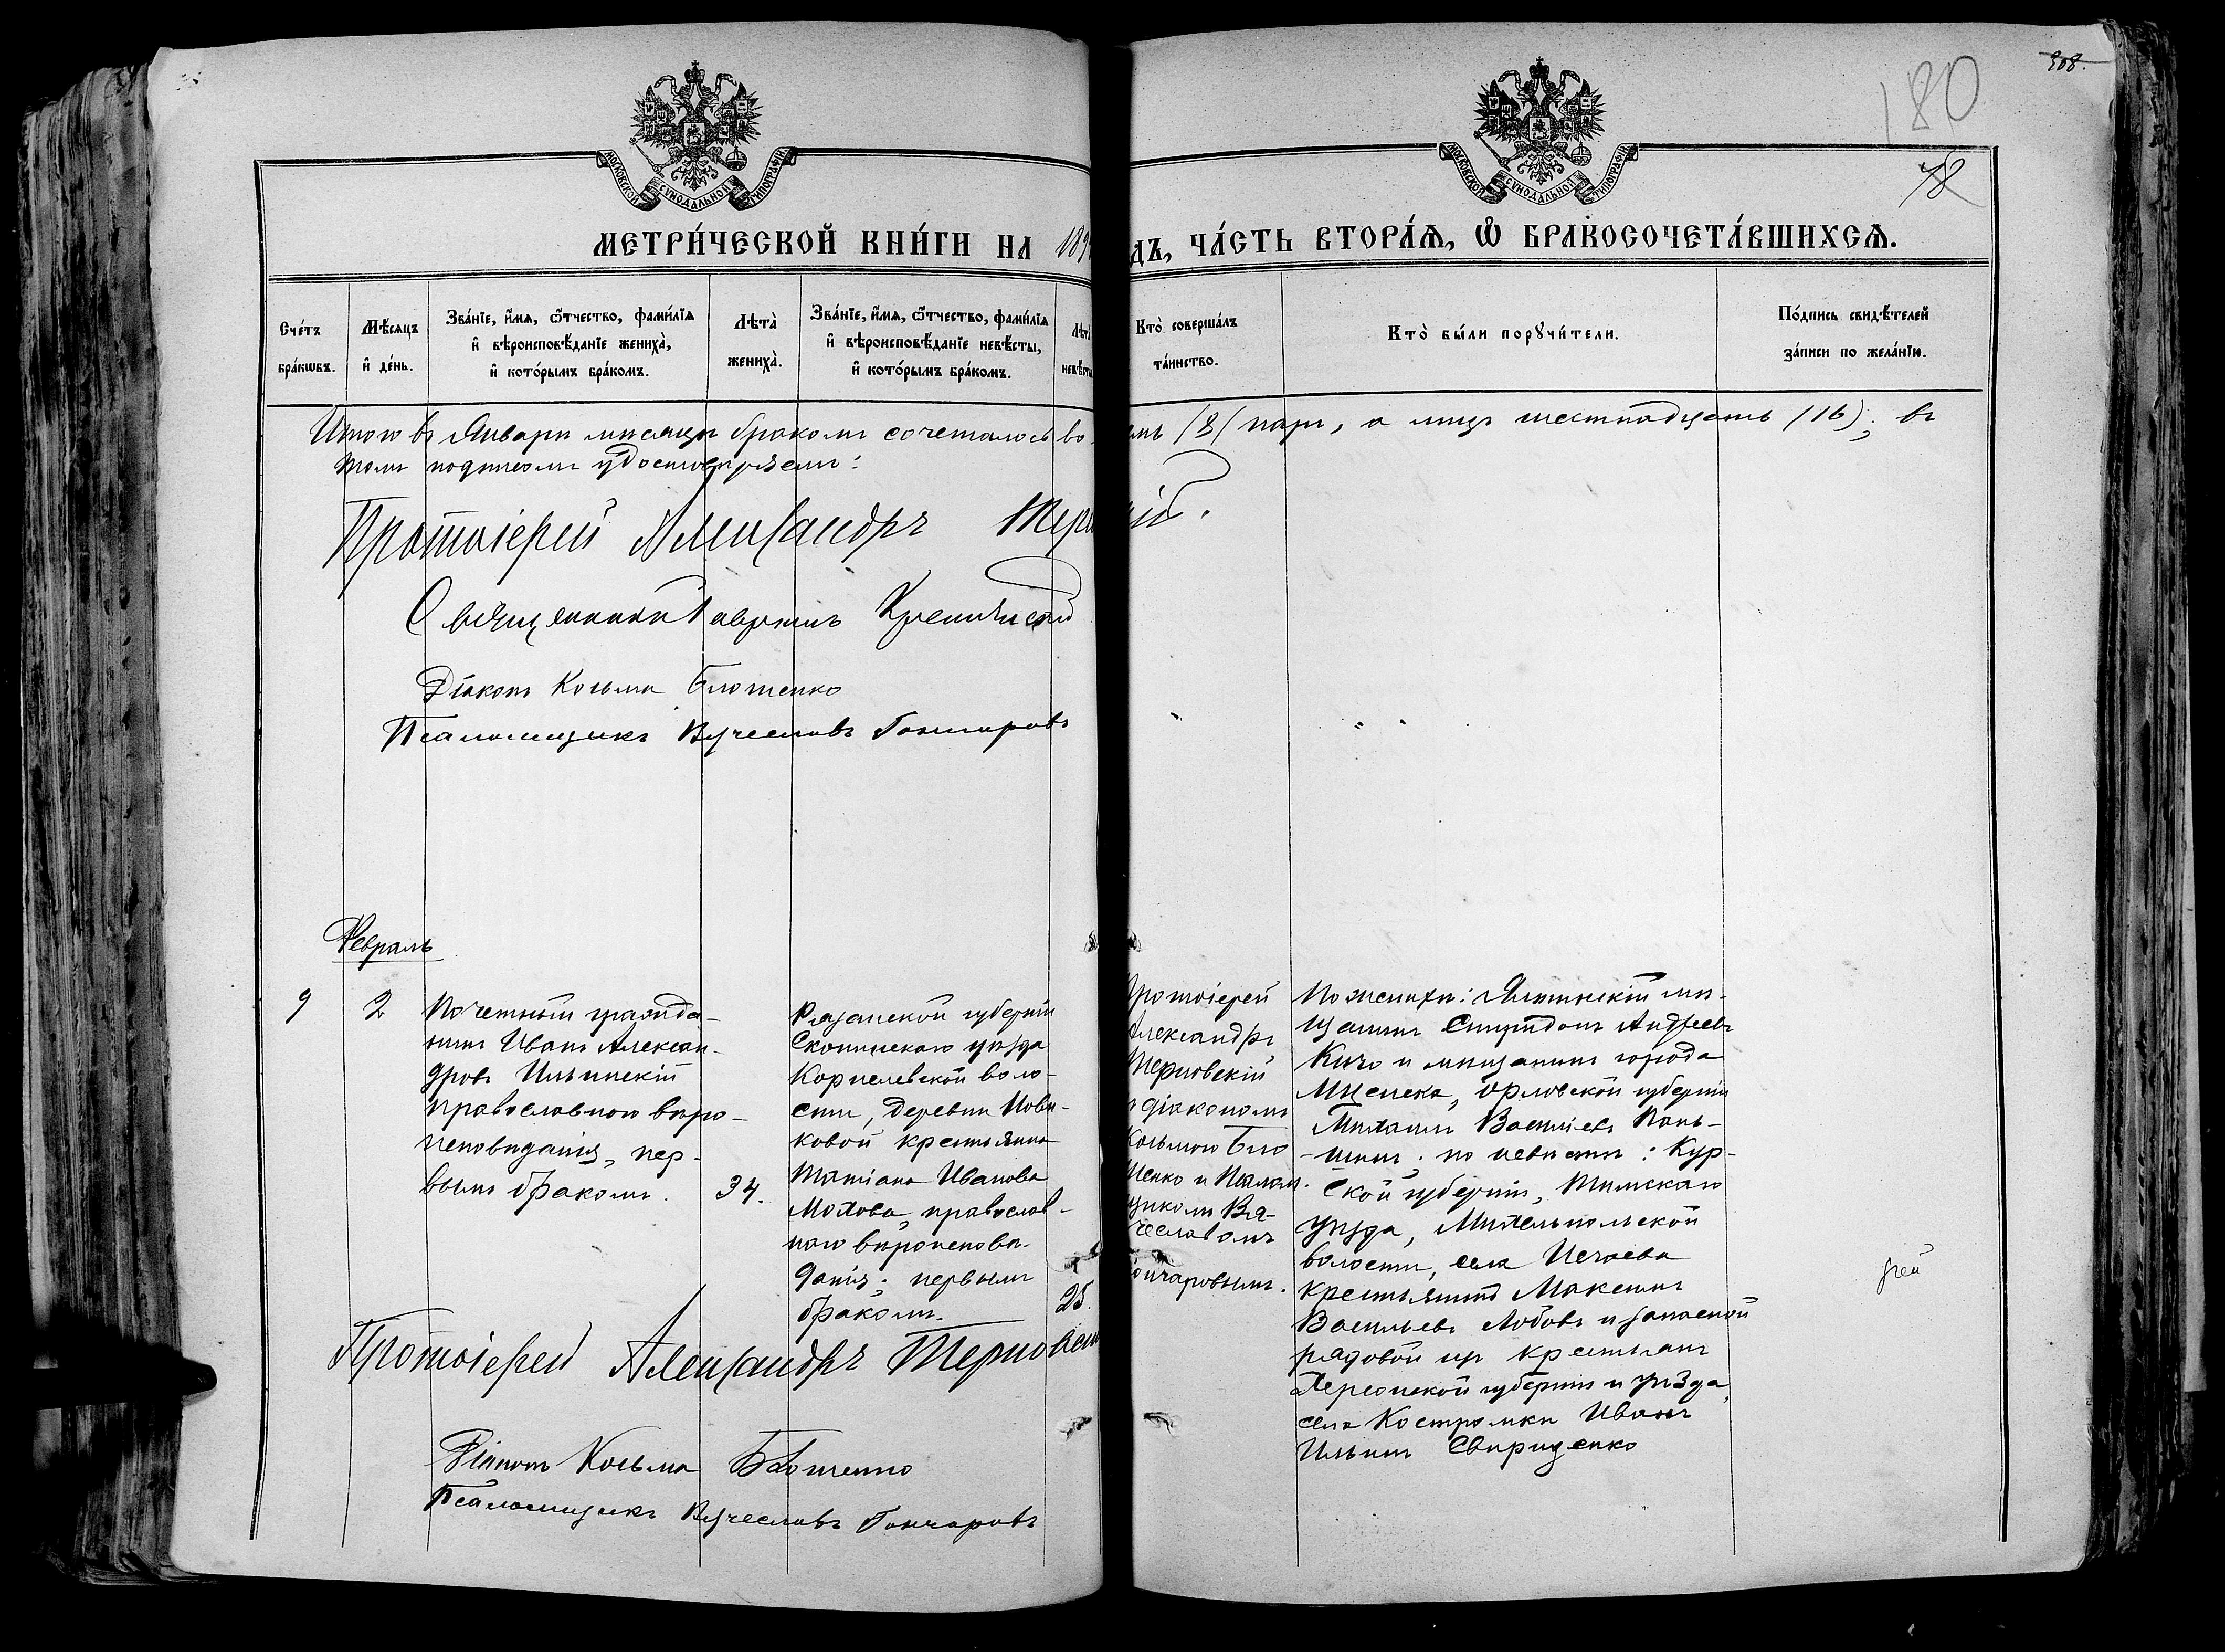 308.
180
78
МОСКОВСКОЙ СѴНОДАЛЬНОЙ ТИПОГРАФІИ
МОСКОВСКОЙ СѴНОДАЛЬНОЙ ТИПОГРАФІИ
МЕТРИ́ЧЕСКОЙ КНИ́ГИ НА 189
ДЪ, ЧА́СТЬ ВТОРА́Ѧ, Ѡ҆ БРАКОСОЧЕТА́ВШИХСѦ.
Сче́тъ бра́кѡвъ.
Мѣ́сѧцъ и҆ де́нь.
Зва́нїе, и҆́мѧ, ѻ҆́тчество, фами́лїѧ
и҆ вѣроисповѣ́данїе жениха̀,
и҆ кото́рымъ бра́комъ.
Лѣта̀ жениха̀.
Зва́нїе, и҆́мѧ, ѻ҆́тчество, фами́лїѧ
и҆ вѣроисповѣ́данїе невѣ́сты,
и҆ кото́рымъ бра́комъ.
Лѣта̀ невѣ́сты
Кто̀ соверша́лъ
та́инство.
Кто̀ бы́ли порꙋчи́тели.
По́дпись свидѣ́телей
за́писи по жела́нїю.
Итого въ Январѣ мѣсяцѣ бракомъ сочеталось во
емь (8) паръ, а лицъ шестнадцать (16); въ
томъ подписомъ удостовѣряемъ:
Протоіерей Александръ Терн
кій.
Священникъ Гавріилъ
Діаконъ Косьма Блошенко
Псаломщикъ Вячеславъ Гончаровъ
Февраль
9
2
Почетный гражда-
нинъ Иванъ Алексан-
дровъ Ильинскій
православного вѣро-
исповѣданія, пер-
вымъ бракомъ.
34.
Рязанской губерніи
Скопинскаго уѣзда
Корнелевской воло-
сти, деревни Нови-
ковой крестьянка
Татіана Иванова
Мохова, православ-
наго вѣроисповѣ-
данія; первымъ
бракомъ.
25.
Протоіерей
Александръ
Терновскій
съ діакономъ
Косьмою Бло
шенко и Псалом.
щикомъ Вя-
чеславомъ
Гончаровымъ.
По женихѣ: Ялтинскій мѣ-
щанинъ Спиридонъ Андреевъ
Кичо и мѣщанинъ города
Мценска, Орловской губерніи
Михаилъ Васильевъ Пань-
шинъ; по невѣстѣ: Кур-
ской губерніи, Тимскаго
уѣзда, Михельпольской
волости, села Нечаева
крестьянинъ Максимъ
Васильевъ Лобовъ и запасной
рядовой изъ крестьянъ
Херсонской губерніи и уѣзда,
села Костромки Иванъ
Ильинъ Свириденко
Протоіерей Александръ Терновск
Діаконъ Косьма Блошенко
Псаломщикъ Вячеславъ Гончаровъ